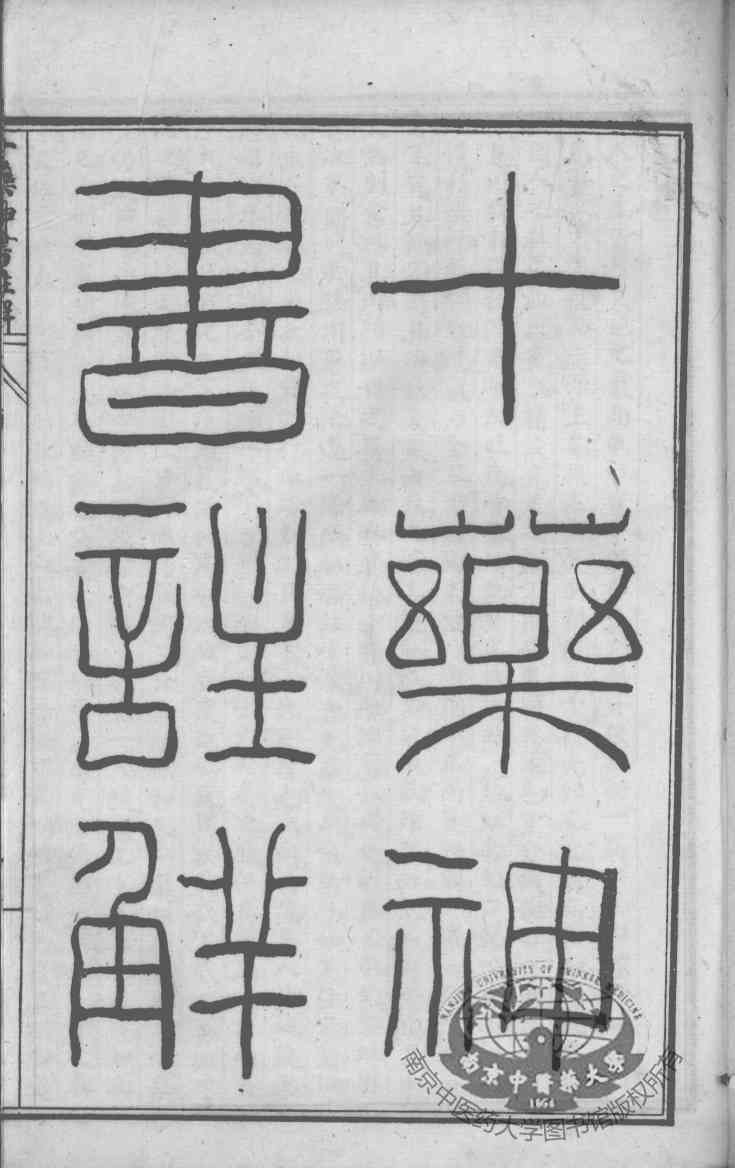 十藥神
書註解
NANJING UNIVERSITY OF CHINESE MEDICINE
南京中醫藥大學
1954
南京中医药大学图书馆版权所有